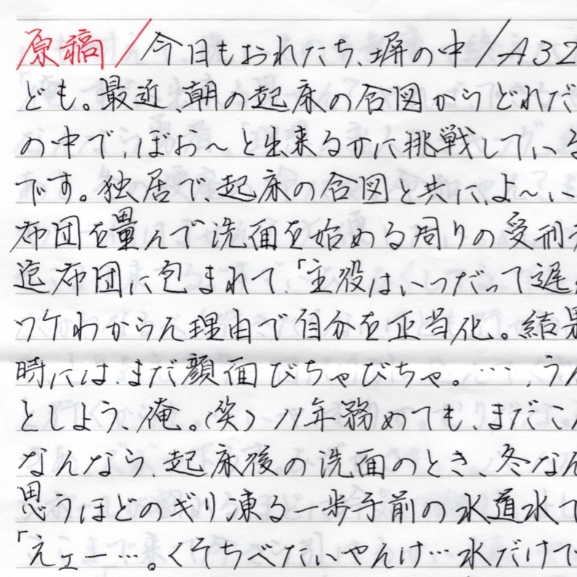 原稿/今日もおれたち、塀の中/A32
ども。最近、朝の起床の合図からどれだ
の中で、ぼお〜と出来るかに挑戦している
です。独居で、起床の合図と共に、よ〜い
布団を畳んで洗面を始める周りの受刑
迄布団に包まれて、「主役はいつだって遅
ワケわからん理由で自分を正当化。結果
時には、まだ顔面びちゃびちゃ。…、うん
としよう、俺。(笑) 11年務めても、まだこん
なんなら、起床後の洗面のとき、冬なん
思うほどのギリ凍る一歩手前の水道水で
「えェー…。くそちべたいやんけ…水だけで